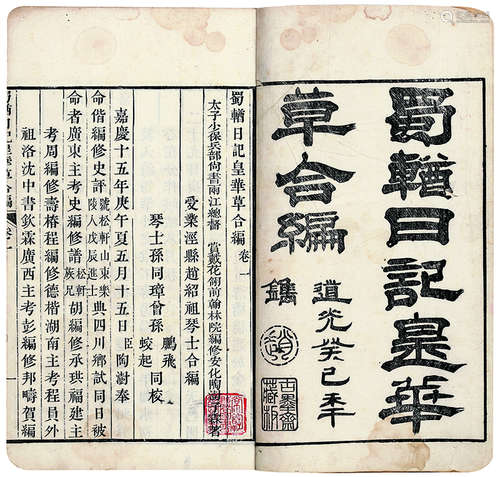 蜀輶日記皇華
草合編
道光癸巳年
鐫
古墨齋
藏板
蜀輶日記皇華草合編 卷一
太子少保兵部尚書兩江總督 賞戴花翎前翰林院編修安化陶澍子霖著
受業涇縣趙紹祖琴士合編
琴士孫同璋會孫 鵬飛 蛟起 同校
嘉慶十五年庚午夏五月十五日 臣陶澍奉
命偕編修史評 號松軒山東樂陵人戊辰進士 典四川鄉試同日被
命者廣東主考史編修譜 松軒族兄 胡編修承珙福建主
考周編修壽椿程編修德楷湖南主考程員外
祖洛沈中書欽霖廣西主考彭編修邦疇賀編